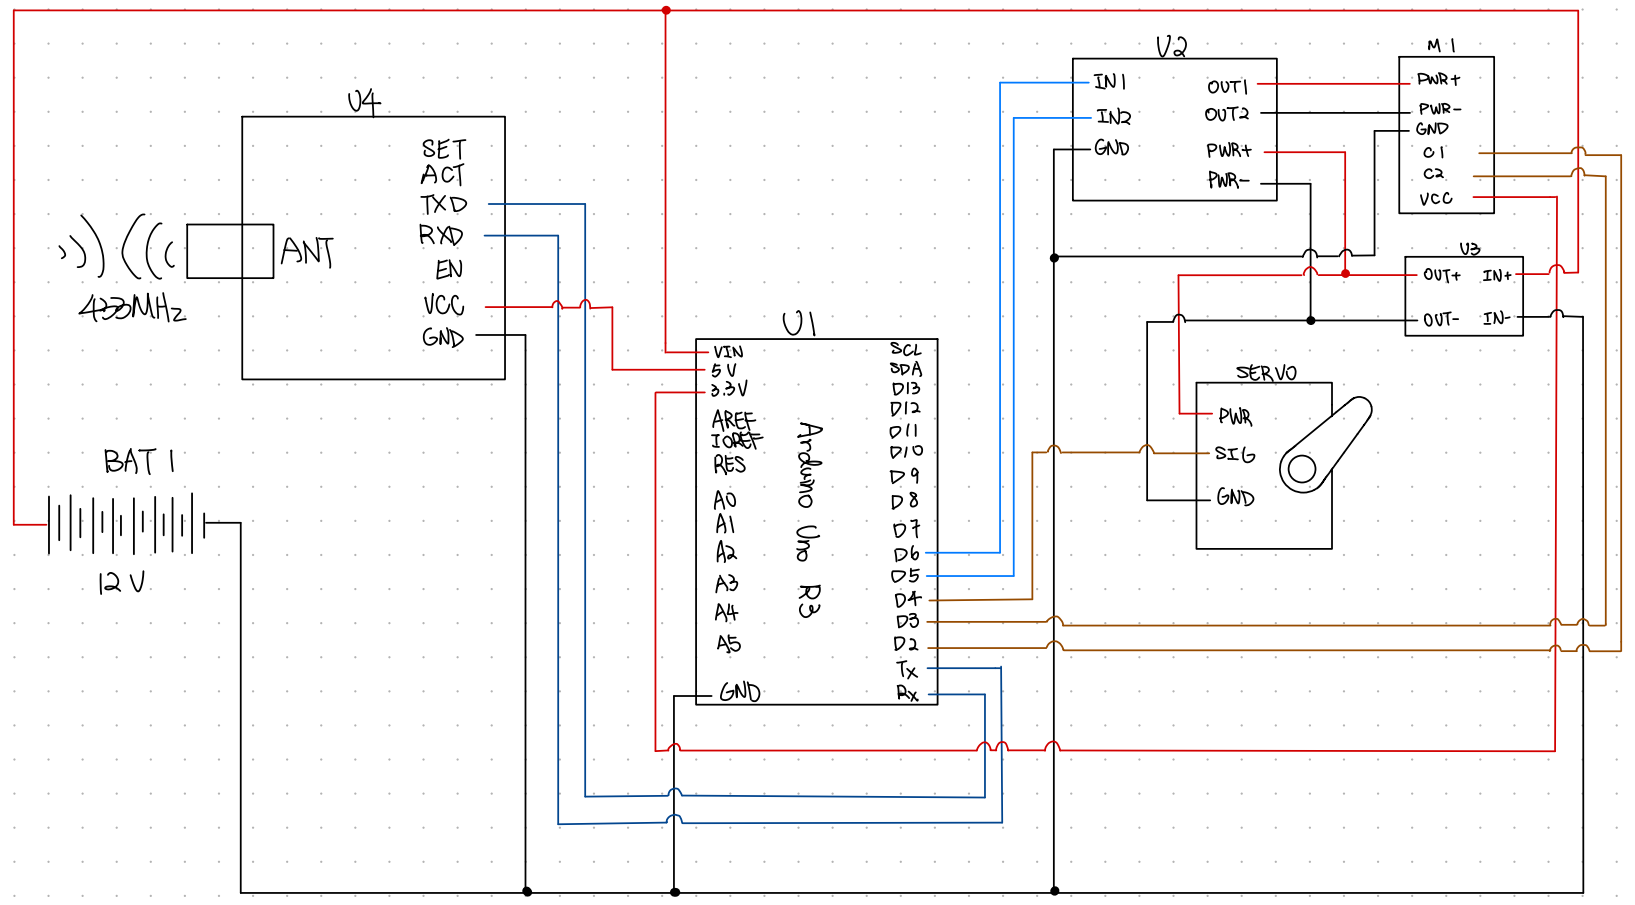 U4
SET
ACT
TXD
RXD
EN
VCC
GND
ANT
433MHz
BAT 1
12V
U1
VIN
5V
3.3V
AREF
IOREF
RES
A0
A1
A2
A3
A4
A5
GND
Arduino Uno R3
SCL
SDA
D13
D12
D11
D10
D9
D8
D7
D6
D5
D4
D3
D2
Tx
Rx
U2
IN1
IN2
GND
OUT1
OUT2
PWR+
PWR-
M1
PWR+
PWR-
GND
C1
C2
VCC
U3
OUT+
IN+
OUT-
IN-
SERVO
PWR
SIG
GND